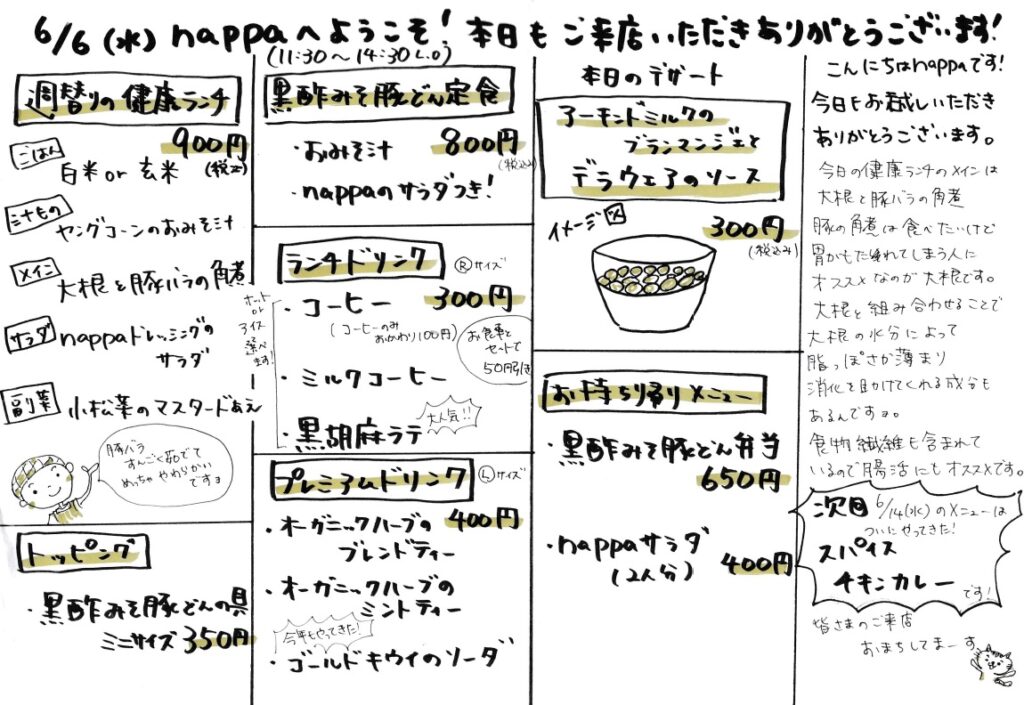 6/6(水) nappaへようこそ！本日もご来店いただきありがとうございます！
(11:30～14:30 L.O)
週替りの健康ランチ
900円
(税込)
ごはん
白米or玄米
汁もの
ヤングコーンのおみそ汁
メイン
大根と豚バラの角煮
サラダ
nappaドレッシングの
サラダ
副菜
小松菜のマスタードあえ
豚バラ
すんごく茹でて
めっちゃやわらかい
ですョ
トッピング
・黒酢みそ豚どんの具
ミニサイズ 350円
黒酢みそ豚どん定食
・おみそ汁
800円
(税込み)
・nappaのサラダつき！
ランチドリンク
Ⓡサイズ
ホット
or
アイス
選べ
ます！
・コーヒー 300円
(コーヒーのみ
おかわり100円)
お食事と
セットで
50円引き
・ミルクコーヒー
・黒胡麻ラテ
大人気!!
プレミアムドリンク
Ⓛサイズ
・オーガニックハーブの 400円
ブレンドティー
・オーガニックハーブの
ミントティー
今年もやってきた！
・ゴールドキウイのソーダ
本日のデザート
アーモンドミルクの
ブランマンジェと
デラウェアのソース
イメージ図
300円
(税込み)
お持ち帰りメニュー
・黒酢みそ豚どん弁当
650円
・nappaサラダ
(2人分)
400円
こんにちはnappaです！
今日もお越しいただき
ありがとうございます。
今日の健康ランチのメインは
大根と豚バラの角煮
豚の角煮は食べたいけど
胃がもたれてしまう人に
オススメなのが大根です。
大根と組み合わせることで
大根の水分によって
脂っぽさが薄まり
消化を助けてくれる成分も
あるんですョ。
食物繊維も含まれて
いるので腸活にもオススメです。
次回 6/14(水)のメニューは
ついにやってきた！
スパイス
チキンカレー
です！
皆さまのご来店
おまちしてまーす